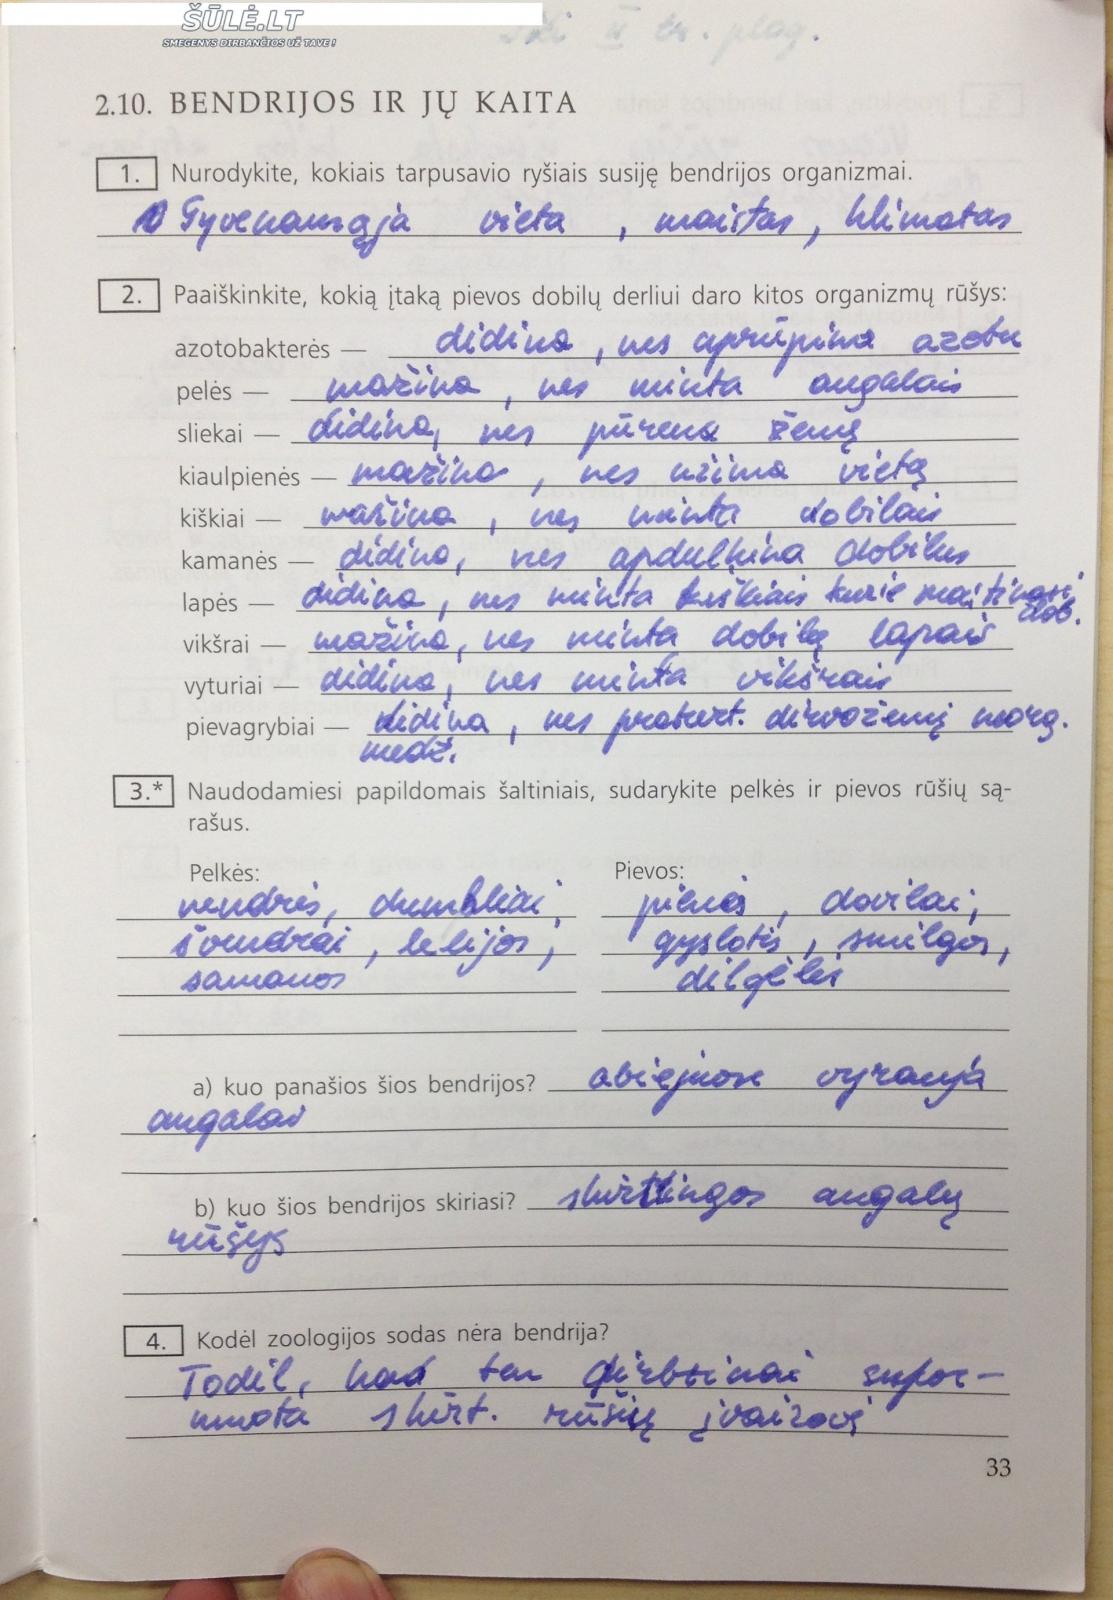 ŠŪLĖ.LT
SMEGENYS DIRBANČIOS UŽ TAVE!
2.10. BENDRIJOS IR JŲ KAITA
1. Nurodykite, kokiais tarpusavio ryšiais susiję bendrijos organizmai.
Gyvenamąja vieta, maistas, klimatas
2. Paaiškinkite, kokią įtaką pievos dobilų derliui daro kitos organizmų rūšys:
azotobakterės — didina, nes aprūpina azotu
pelės — mažina, nes minta augalais
sliekai — didina, nes purena žemę
kiaulpienės — mažina, nes užima vietą
kiškiai — mažina, nes minta dobilais
kamanės — didina, nes apdulkina dobilus
lapės — didina, nes minta kiškiais kurie maitinasi dob.
vikšrai — mažina, nes minta dobilų lapais
vyturiai — didina, nes minta vikšrais
pievagrybiai — didina, nes praturt. dirvožemį norg.
medž.
3.* Naudodamiesi papildomais šaltiniais, sudarykite pelkės ir pievos rūšių są-
rašus.
Pelkės:
nendrės, dumbliai,
švendrai, lelijos,
samanos
Pievos:
pienės, dovilai,
gyslotis, smilgos,
dilgėlės
a) kuo panašios šios bendrijos? abiejuose vyrauja
augalai
b) kuo šios bendrijos skiriasi? skirtingos augalų
rūšys
4. Kodėl zoologijos sodas nėra bendrija?
Todėl, kad ten dirbtinai sufor-
muota skirt. rūšių įvairovė
33